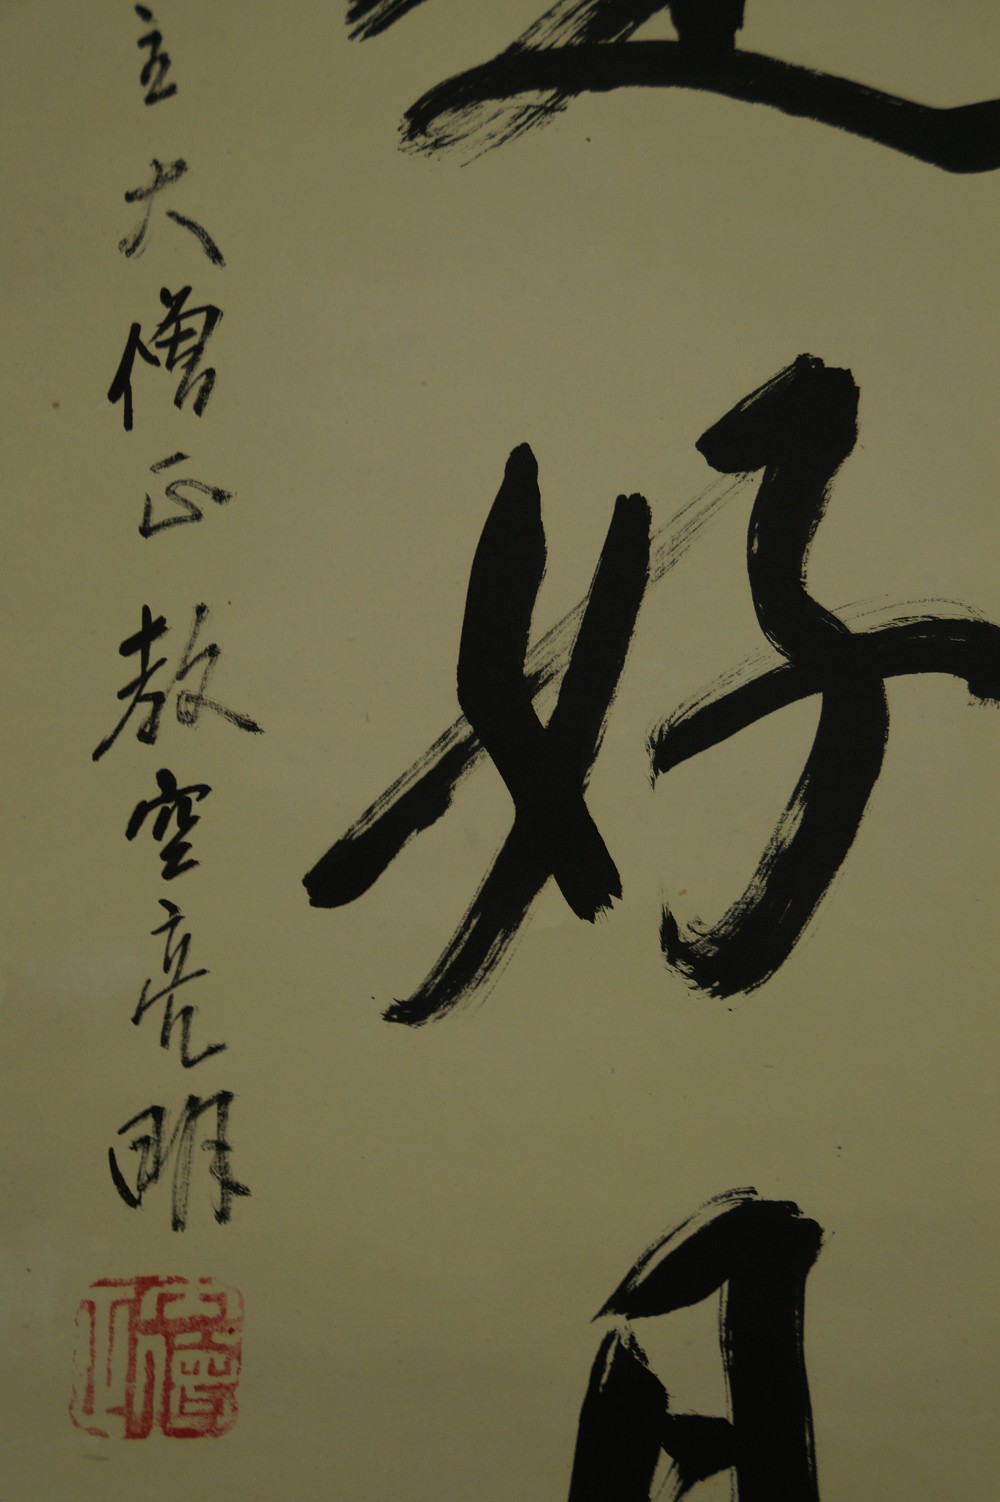 好日
主大僧正教空亮明